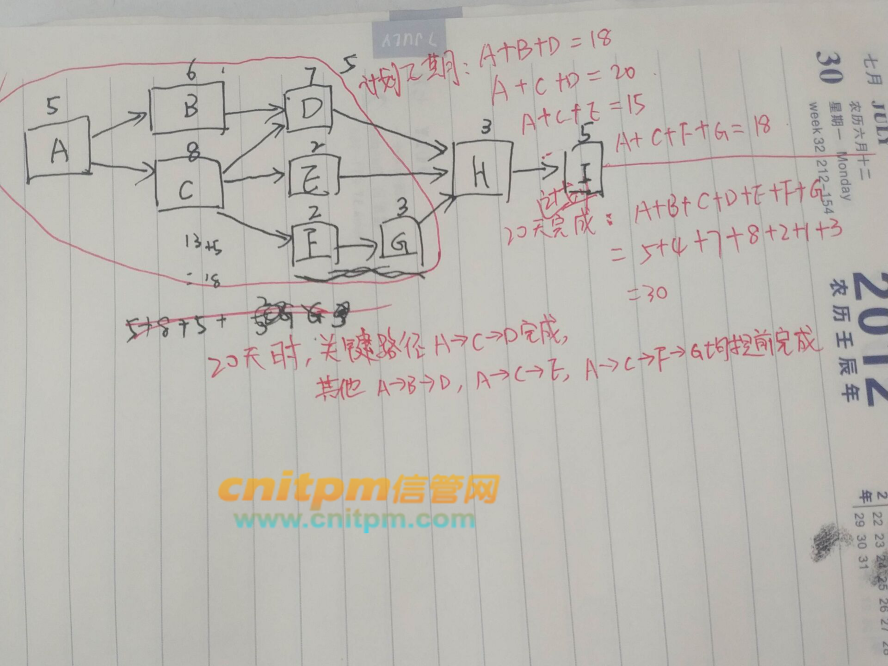 7 JULY
七月 JULY
30
星期一 Monday
农历六月十二
week 32 212-154
2012
农历壬辰年
计划工期: A+B+D=18
A+C+D=20
A+C+E=15
A+C+F+G=18
5
6
7
5
A
B
D
8
C
2
E
3
H
5
I
2
F
3
G
13+5
=18
20天完成:
A+B+C+D+E+F+G
=5+4+7+8+2+1+3
=30
5+8+5+
20天时,关键路径 A→C→D完成,
其他 A→B→D, A→C→E, A→C→F→G均提前完成
cnitpm信管网
www.cnitpm.com
年
2
22 23 24 25 26 27 28
29 30 31